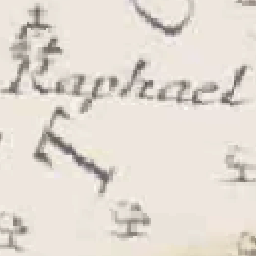 Raphael
T